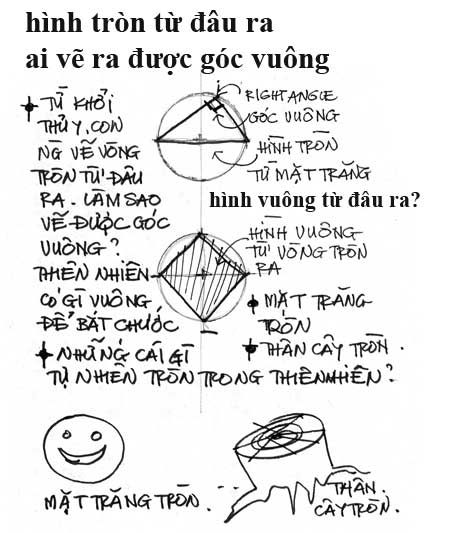 hình tròn từ đâu ra
ai vẽ ra được góc vuông
TỪ KHỞI
THỦY, CON
NG VẼ VÒNG
TRÒN TỪ ĐÂU
RA. LÀM SAO
VẼ ĐƯỢC GÓC
VUÔNG?
THIÊN NHIÊN
CÓ GÌ VUÔNG
ĐỂ BẮT CHƯỚC
RIGHT ANGLE
GÓC VUÔNG
HÌNH TRÒN
TỪ MẶT TRĂNG
hình vuông từ đâu ra?
HÌNH VUÔNG
TỪ VÒNG TRÒN
RA
MẶT TRĂNG
TRÒN
THÂN CÂY TRÒN.
NHỮNG CÁI GÌ
TỰ NHIÊN TRÒN TRONG THIÊN NHIÊN?
MẶT TRĂNG TRÒN.
THÂN
CÂY TRÒN.